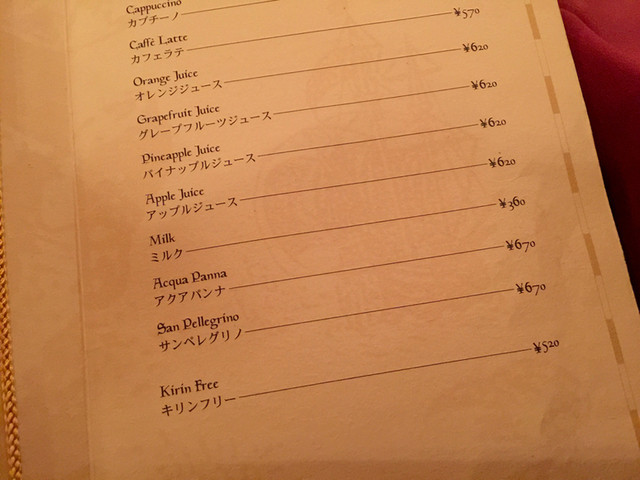 Cappuccino
カプチーノ
Caffè Latte
カフェラテ ¥570
Orange Juice
オレンジジュース ¥620
Grapefruit Juice
グレープフルーツジュース ¥620
Pineapple Juice
パイナップルジュース ¥620
Apple Juice
アップルジュース ¥620
Milk
ミルク ¥360
Acqua Panna
アクアパンナ ¥670
San Pellegrino
サンペレグリノ ¥670
Kirin Free
キリンフリー ¥520